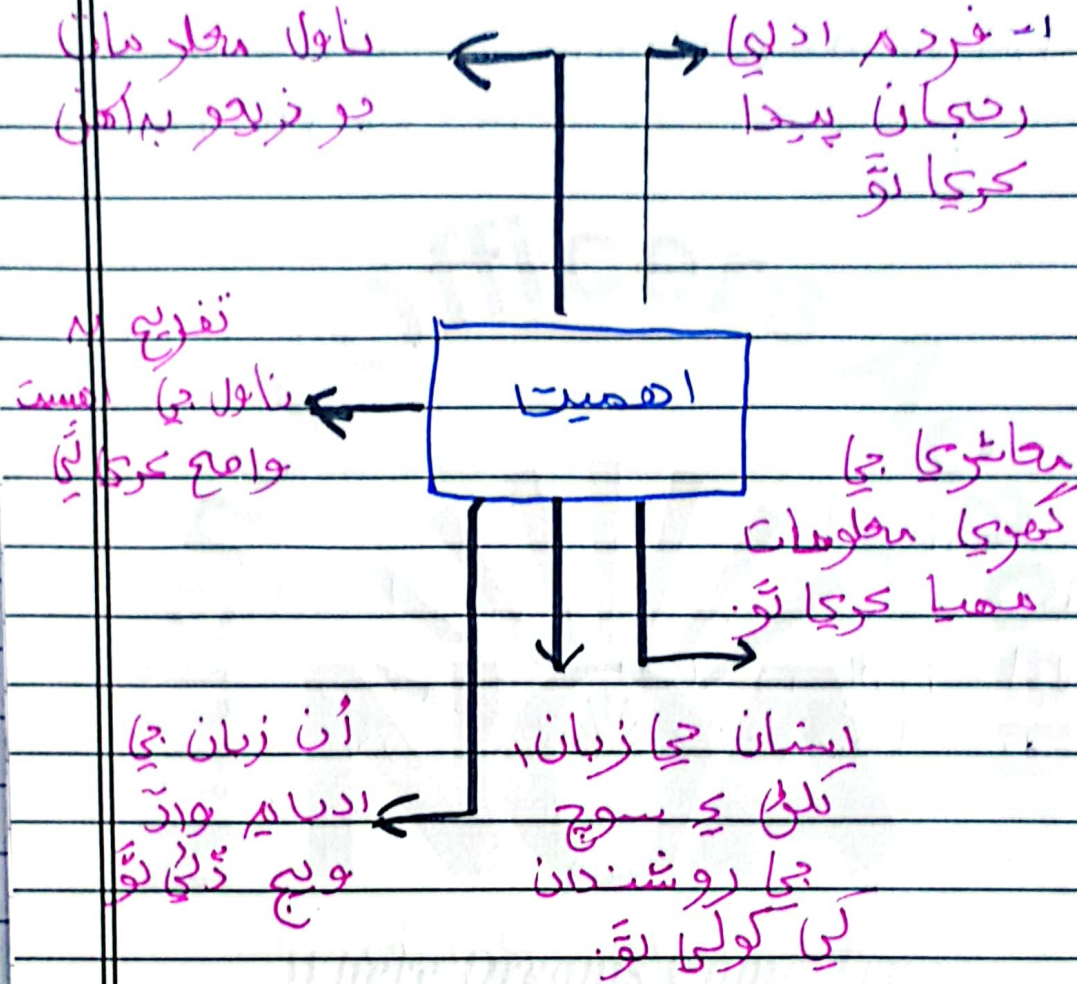 ۱- فرد ۾ ادبي
رحجان پيدا
ڪري ٿو
ناول معلومات
جو ذريعو به آهي
اهميت
تفريح ۾
ناول جي اهميت
واضح ڪري ٿي
معاشري جي
گهري معلومات
مهيا ڪري ٿو.
انسان جي زبان،
۽ سوچ
جي روشندان
کي کولي ٿو.
اُن زبان جي
ادب ۾ واڌ
ويجهه ڏئي ٿو